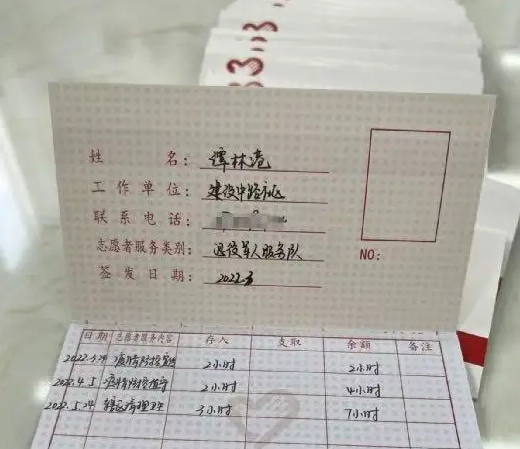 姓名: 谭林
工作单位: 建设中路社区
联系电话:
志愿者服务类别: 退役军人服务队
签发日期: 2022.3
NO:
日期 志愿者服务内容 存入 支取 余额 备注
疫情防控 2小时 2小时
2022.4.5 疫情防控值守 2小时 4小时
2022.5.24 辖区清理卫生 3小时 7小时